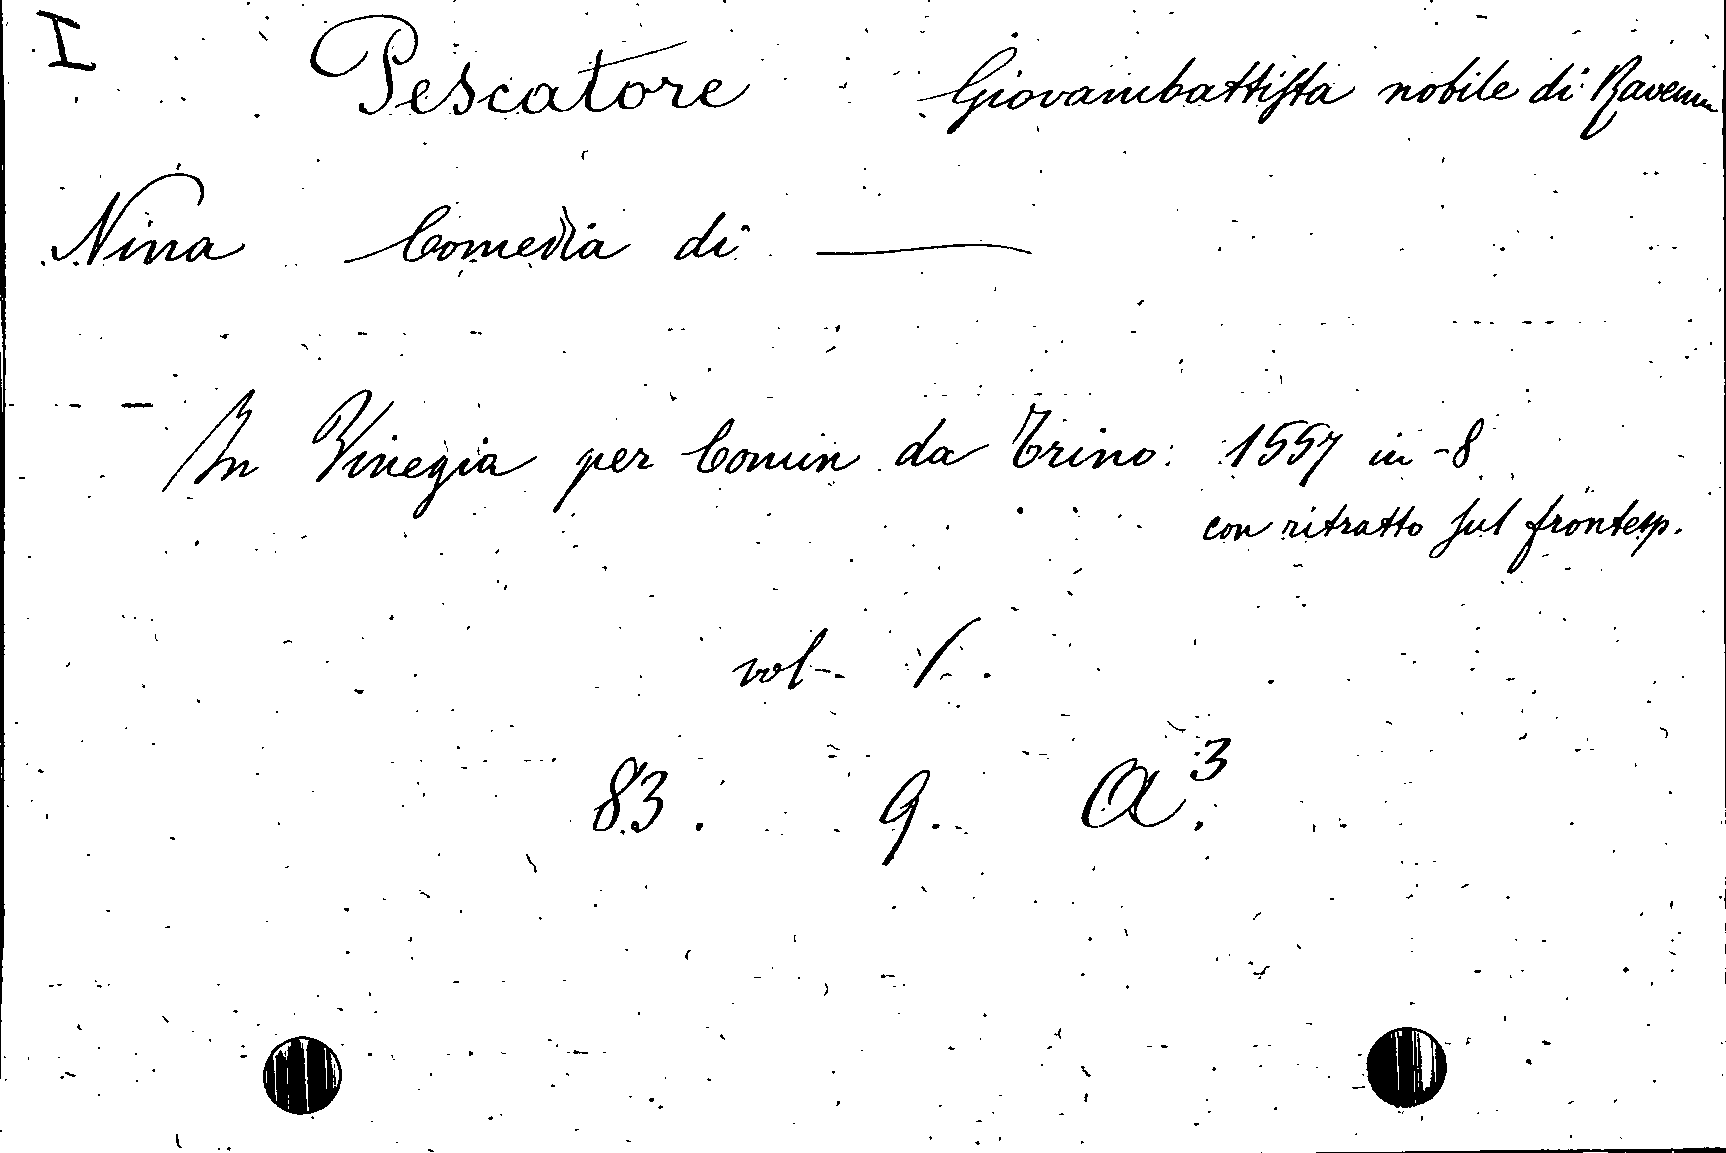 I
Pescatore Giovambattista nobile di Ravenna
Nina Comedia di ———
In Vinegia per Comin da Trino: 1557 in-8
con ritratto sul frontesp.
vol. 1.
83. 9. A³.